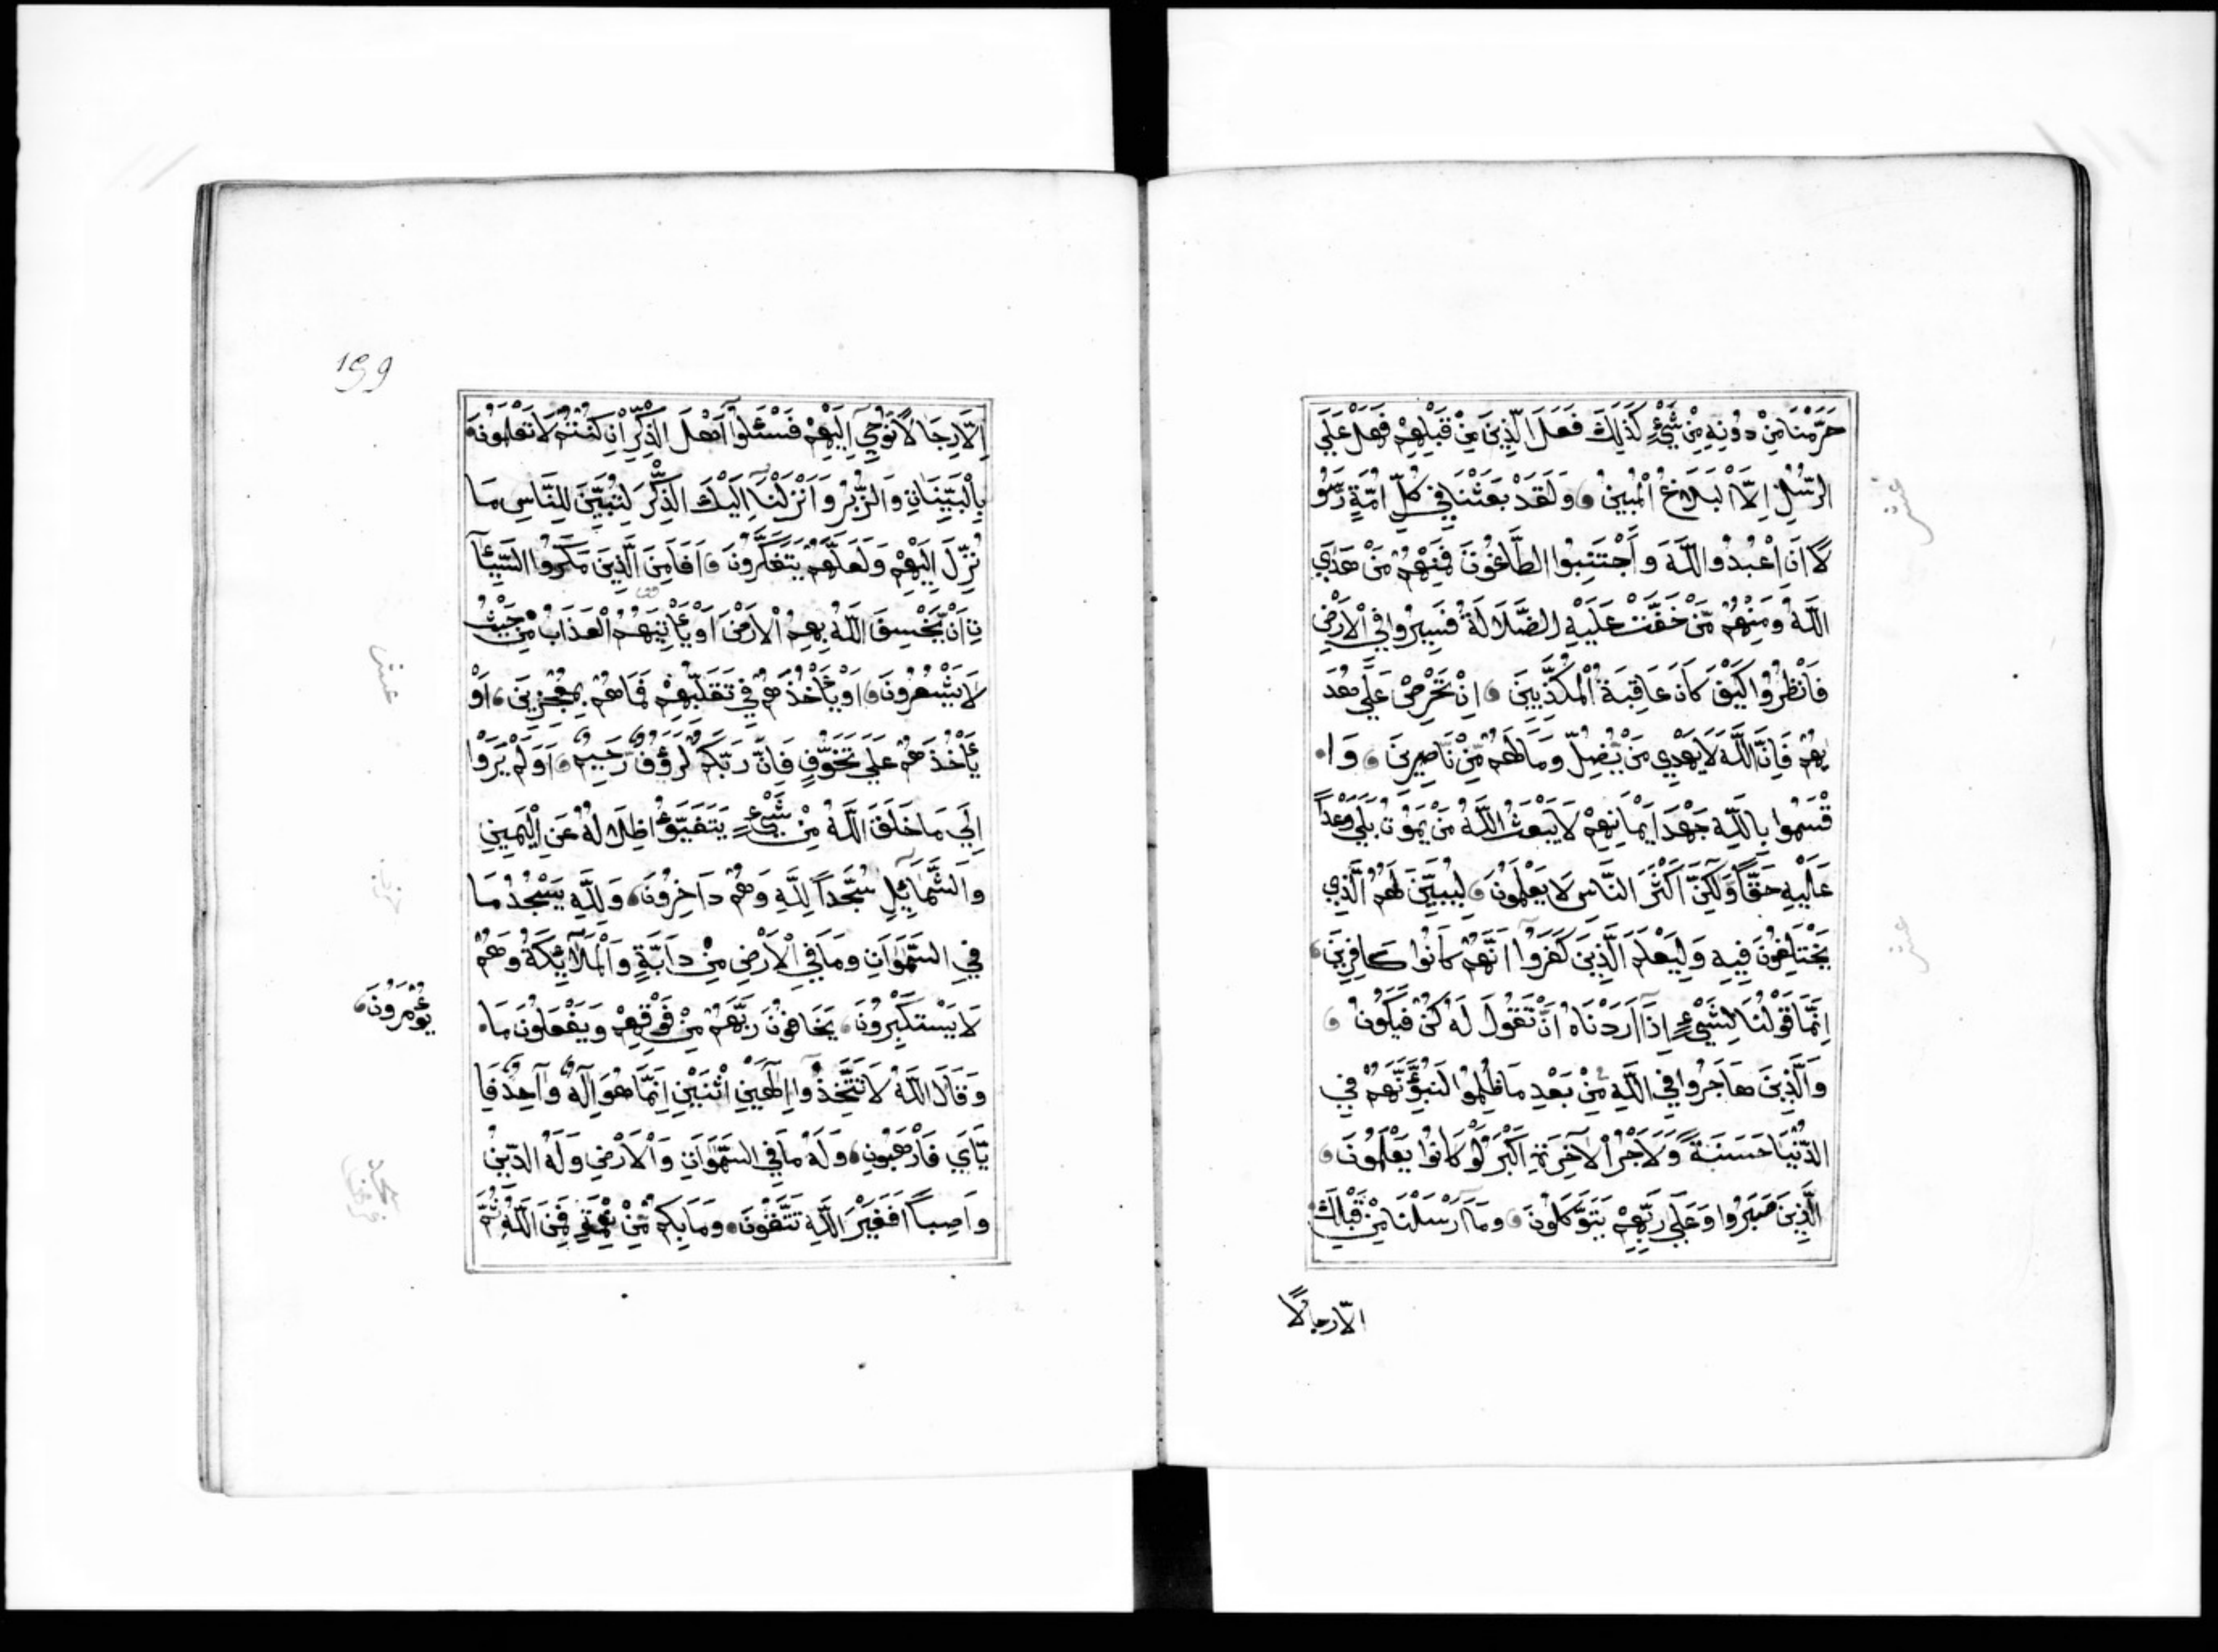 حَرَّمْنَا مِنْ دُونِهِ مِنْ شَيْءٍ كَذَلِكَ فَعَلَ الَّذِينَ مِنْ قَبْلِهِمْ فَهَلْ عَلَى
الرُّسُلِ اِلَّا الْبَلَاغُ الْمُبِينُ وَلَقَدْ بَعَثْنَا فِي كُلِّ اُمَّةٍ رَسُو
لًا اَنَ اعْبُدُوا اللَّهَ وَاجْتَنِبُوا الطَّاغُوتَ فَمِنْهُمْ مَنْ هَدَى
اللَّهُ وَمِنْهُمْ مَّنْ حَقَّتْ عَلَيْهِ الضَّلَالَةُ فَسِيرُوا فِي الْاَرْضِ
فَانْظُرُوا كَيْفَ كَانَ عَاقِبَةُ الْمُكَذِّبِينَ اِنْ تَحْرِصْ عَلَى هُدَ
يهُمْ فَاِنَّ اللَّهَ لَا يَهْدِي مَنْ يُّضِلُّ وَمَا لَهُمْ مِّنْ نَاصِرِينَ وَا
قْسَمُوا بِاللَّهِ جَهْدَ اَيْمَانِهِمْ لَا يَبْعَثُ اللَّهُ مَنْ يَمُوتُ بَلَى وَعْداً
عَلَيْهِ حَقّاً وَلَكِنَّ اَكْثَرَ النَّاسِ لَا يَعْلَمُونَ لِيُبَيِّنَ لَهُمُ الَّذِي
يَخْتَلِفُونَ فِيهِ وَلِيَعْلَمَ الَّذِينَ كَفَرُوا اَنَّهُمْ كَانُوا كَافِرِينَ
اِنَّمَا قَوْلُنَا لِشَيْءٍ اِذَا اَرَدْنَاهُ اَنْ تَقُولَ لَهُ كُنْ فَيَكُونُ
وَالَّذِينَ هَاجَرُوا فِي اللَّهِ مِنْ بَعْدِ مَا ظُلِمُوا لَنُبَوِّئَنَّهُمْ فِي
الدُّنْيَا حَسَنَةً وَلَاَجْرُ الْآخِرَةِ اَكْبَرُ لَوْ كَانُوا يَعْلَمُونَ
الَّذِينَ صَبَرُوا وَعَلَى رَبِّهِمْ يَتَوَكَّلُونَ وَمَا اَرْسَلْنَا مِنْ قَبْلِكَ
الّا رجالًا
عشر
عشر
199
اِلَّا رِجَالًا نُوحِي اِلَيْهِمْ فَسْئَلُوا اَهْلَ الذِّكْرِ اِنْ كُنْتُمْ لَا تَعْلَمُونَ
بِالْبَيِّنَاتِ وَالزُّبُرِ وَاَنْزَلْنَا اِلَيْكَ الذِّكْرَ لِتُبَيِّنَ لِلنَّاسِ مَا
نُزِّلَ اِلَيْهِمْ وَلَعَلَّهُمْ يَتَفَكَّرُونَ اَفَاَمِنَ الَّذِينَ مَكَرُوا السَّيِّئَا
تِ اَنْ يَّخْسِفَ اللَّهُ بِهِمُ الْاَرْضَ اَوْ يَاْتِيَهُمُ الْعَذَابُ مِنْ حَيْثُ
لَا يَشْعُرُونَ اَوْ يَاْخُذَهُمْ فِي تَقَلُّبِهِمْ فَمَا هُمْ بِمُعْجِزِينَ اَوْ
يَاْخُذَهُمْ عَلَى تَخَوُّفٍ فَاِنَّ رَبَّكُمْ لَرَؤُفٌ رَّحِيمٌ اَوَلَمْ يَرَوْا
اِلَى مَا خَلَقَ اللَّهُ مِنْ شَيْءٍ يَتَفَيَّؤُا ظِلَالُهُ عَنِ الْيَمِينِ
وَالشَّمَائِلِ سُجَّداً لِلَّهِ وَهُمْ دَاخِرُونَ وَلِلَّهِ يَسْجُدُ مَا
فِي السَّمَوَاتِ وَمَا فِي الْاَرْضِ مِنْ دَابَّةٍ وَالْمَلَائِكَةُ وَهُمْ
لَا يَسْتَكْبِرُونَ يَخَافُونَ رَبَّهُمْ مِنْ فَوْقِهِمْ وَيَفْعَلُونَ مَا
يُؤْمَرُونَ
وَقَالَ اللَّهُ لَا تَتَّخِذُوا اِلَهَيْنِ اثْنَيْنِ اِنَّمَا هُوَ اِلَهٌ وَاحِدٌ فَا
يَّايَ فَارْهَبُونِ وَلَهُ مَا فِي السَّمَوَاتِ وَالْاَرْضِ وَلَهُ الدِّينُ
وَاصِباً اَفَغَيْرَ اللَّهِ تَتَّقُونَ وَمَا بِكُمْ مِّنْ نِعْمَةٍ فَمِنَ اللَّهِ ثُمَّ
عشر